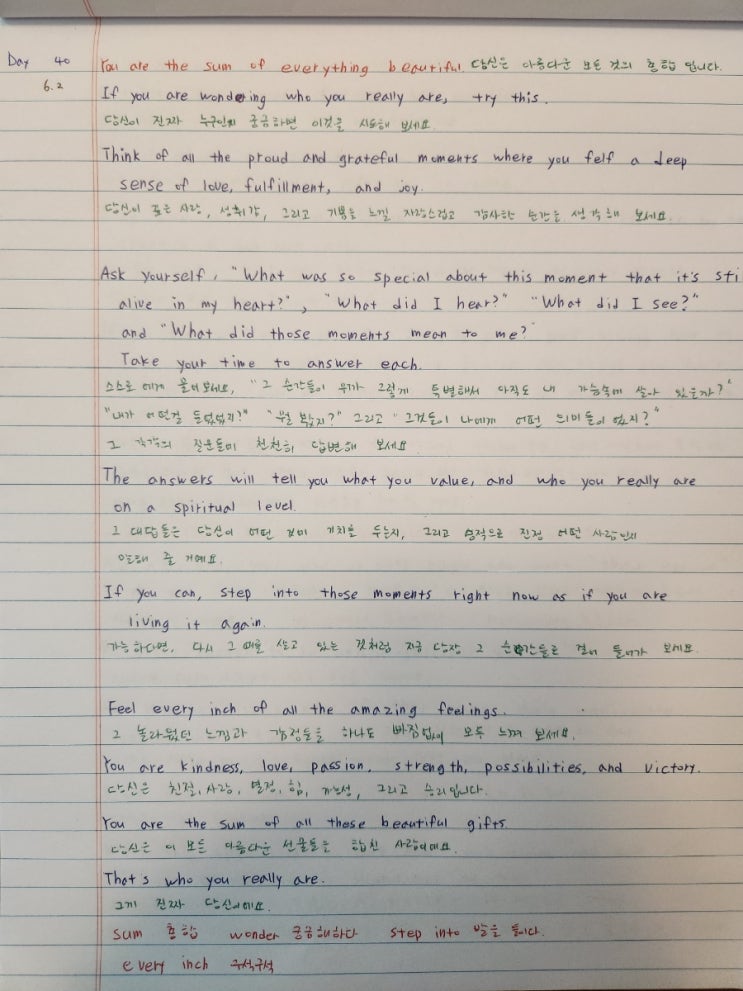 Day 40 You are the sum of everything beautiful. 당신은 아름다운 모든 것의 총합 입니다.
6.2 If you are wondering who you really are, try this.
당신이 진짜 누구인지 궁금하면 이것을 시도해 보세요.
Think of all the proud and grateful moments where you felf a deep
sense of love, fulfillment, and joy.
당신이 깊은 사랑, 성취감, 그리고 기쁨을 느낄 자랑스럽고 감사한 순간을 생각해 보세요.
Ask yourself, "What was so special about this moment that it's sti
alive in my heart?", "What did I hear?" "What did I see?"
and "What did those moments mean to me?"
Take your time to answer each.
스스로에게 물어보세요, "그 순간들이 뭐가 그렇게 특별해서 아직도 내 가슴속에 살아 있을까?"
"내가 어떤걸 들었었지?" "뭘 봤지?" 그리고 "그것들이 나에게 어떤 의미들이 였지?"
그 각각의 질문들이 천천히 답변해 보세요
The answers will tell you what you value, and who you really are
on a spiritual level.
그 대답들은 당신이 어떤 것이 가치를 두는지, 그리고 영적으로 진정 어떤 사람인지
말해 줄 거예요.
If you can, step into those moments right now as if you are
living it again.
가능하다면, 다시 그 때를 살고 있는 것처럼 지금 당장 그 순간들로 걸어 들어가 보세요.
Feel every inch of all the amazing feelings.
그 놀라웠던 느낌과 감정들을 하나도 빠짐없이 모두 느껴 보세요.
You are kindness, love, passion, strength, possibilities, and victory.
당신은 친절, 사랑, 열정, 힘, 가능성, 그리고 승리입니다.
You are the sum of all these beautiful gifts.
당신은 이 모든 아름다운 선물들을 합친 사람이에요.
That's who you really are.
그게 진짜 당신이에요.
sum 총합 wonder 궁금해하다 step into 발을 들이다.
every inch 구석구석